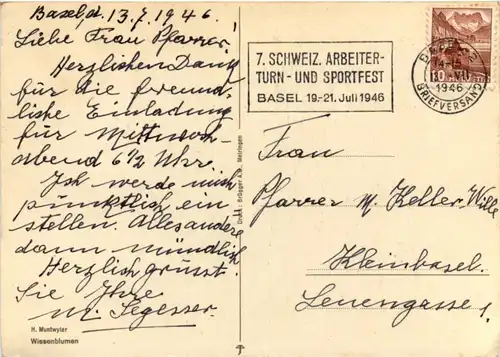 Basel, d. 13.7.1946.
Liebe Frau Pfarrer!
Herzlichen Dank
für die freund-
liche Einladung
für Mittwoch-
abend 6 1/2 Uhr.
Ich werde mich
pünktlich ein
stellen. Alles andere
dann mündlich
Herzlich grüsst
Sie Ihre
M. Segesser.
H. Muntwyler
Wissenblumen
Druck: Brügger A.G. Meiringen
7. SCHWEIZ. ARBEITER-
TURN- UND SPORTFEST
BASEL 19.-21. Juli 1946
1946
BRIEFVERSAND
10
Frau
Pfarrer M. Keller-Wille
Kleinbasel.
Leuengasse 1.